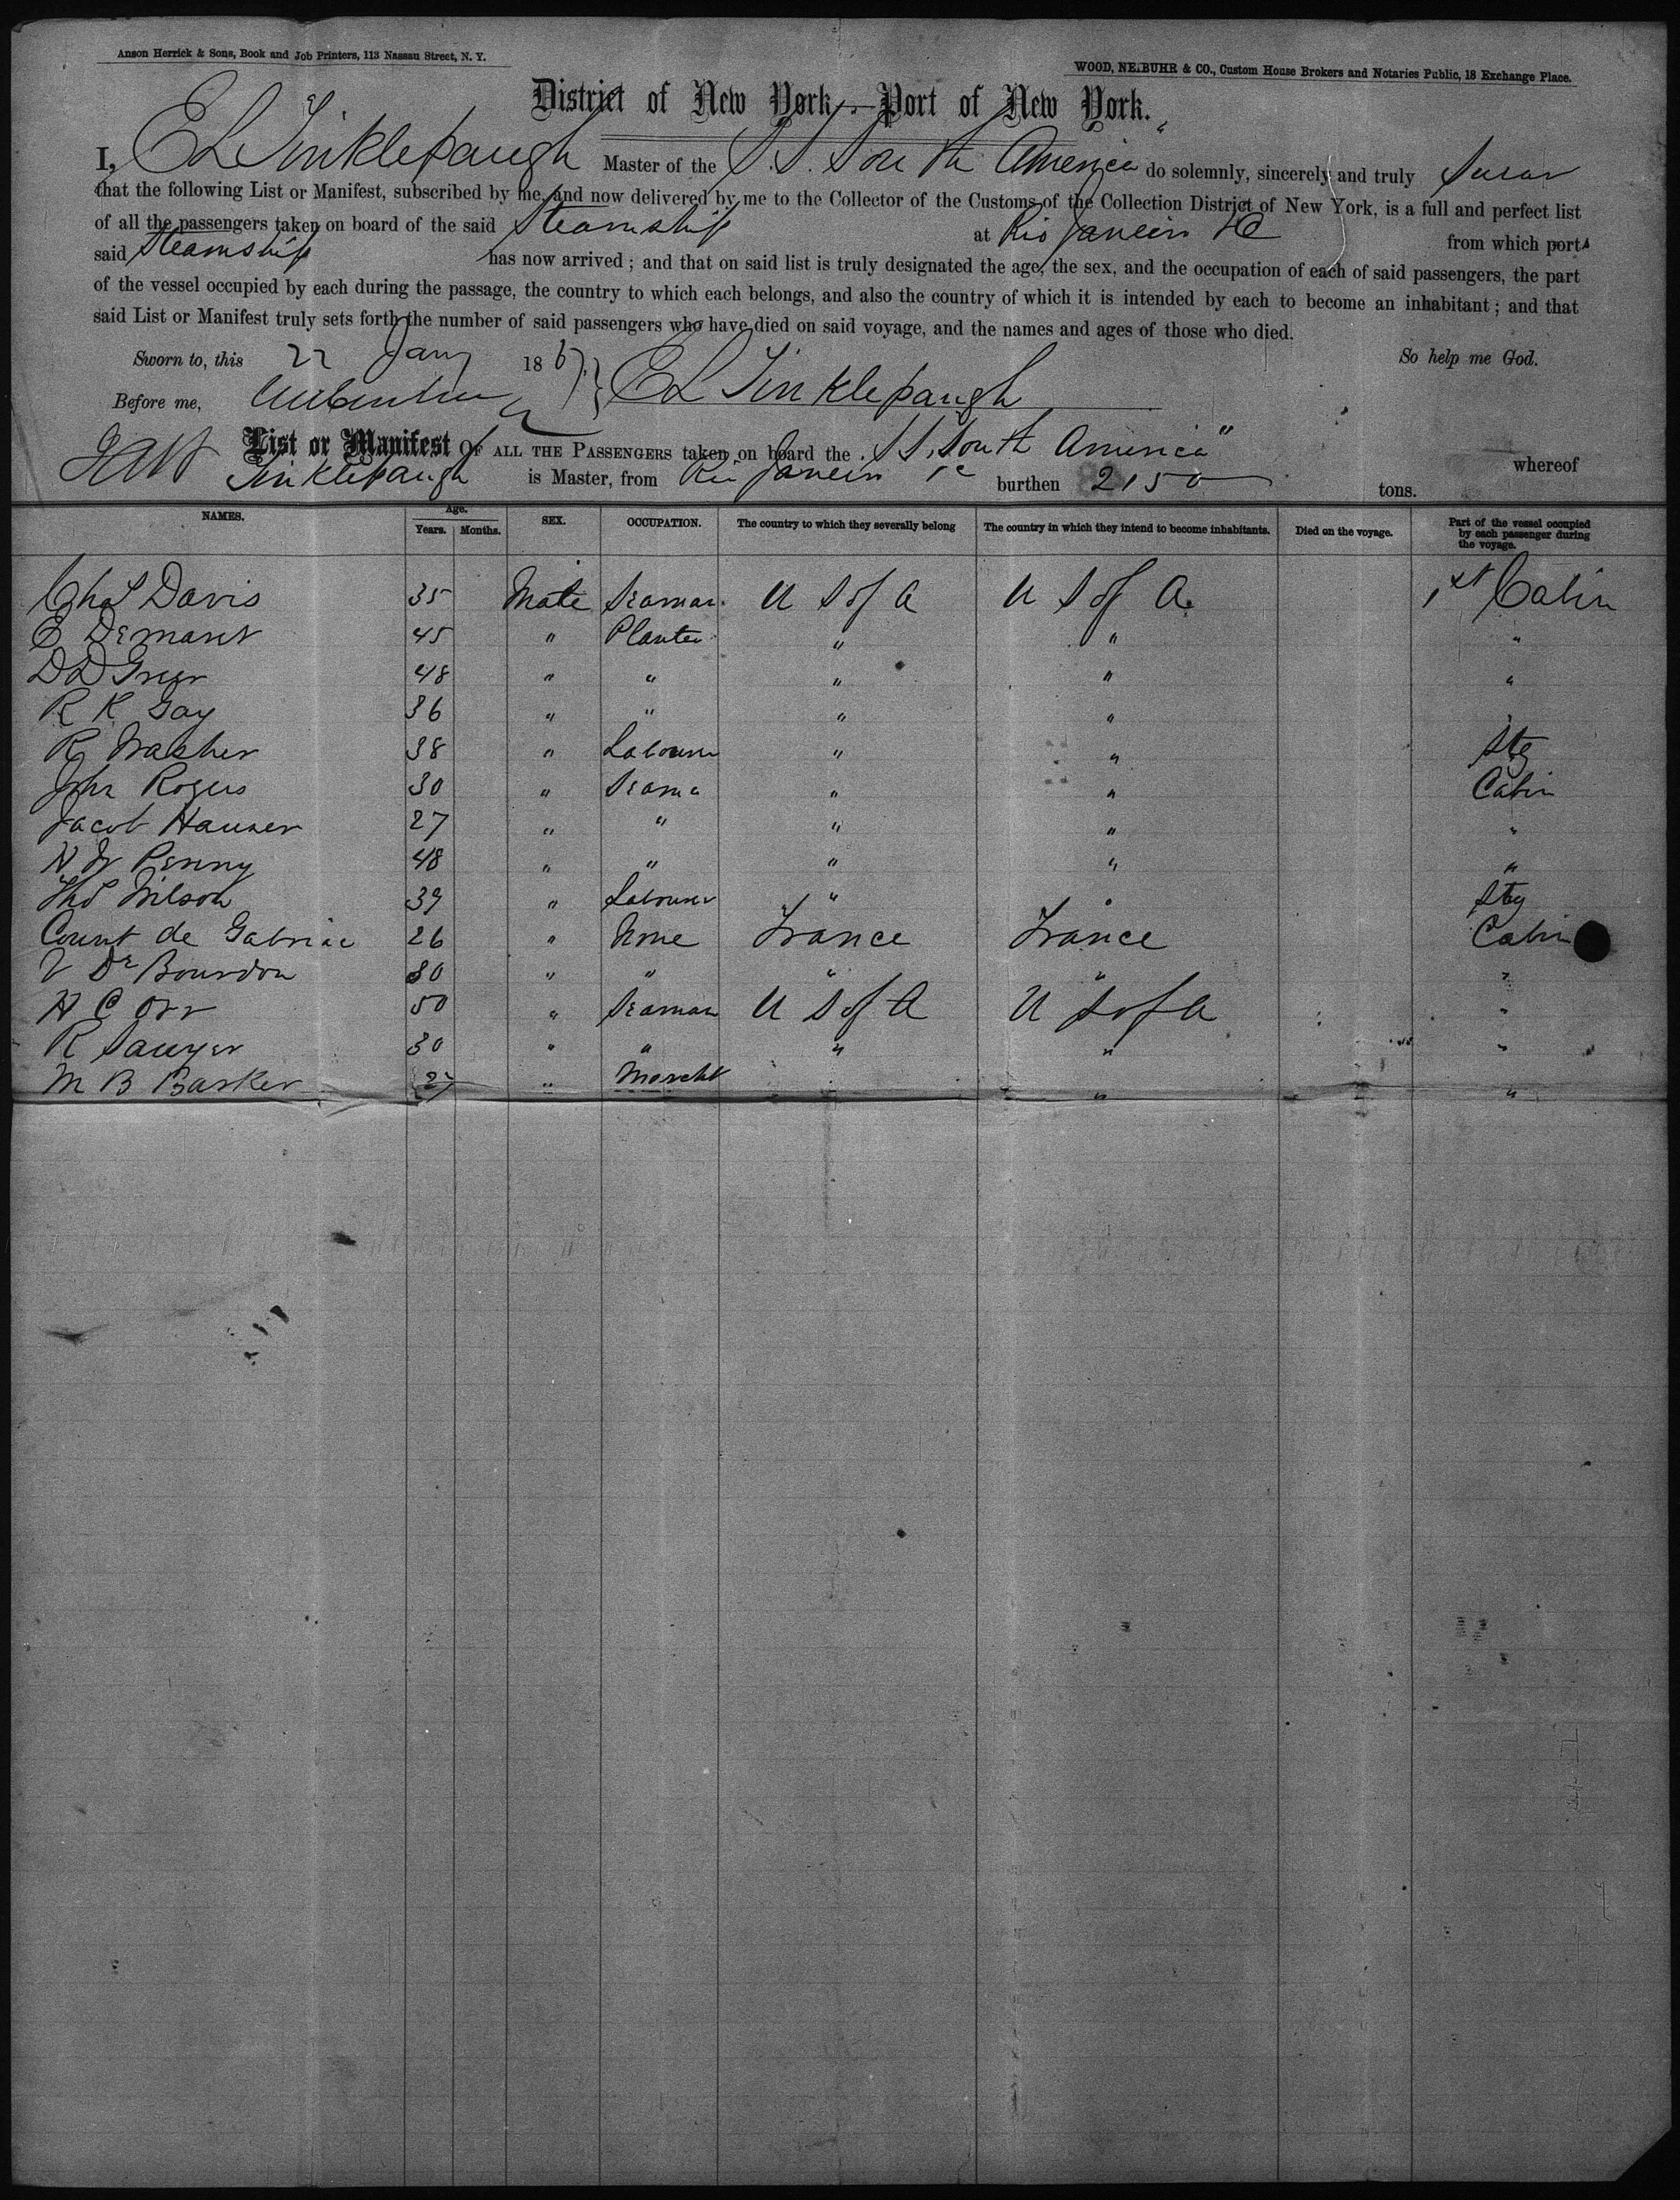 Anson Herrick & Sons, Book and Job Printers, 113 Nassau Street, N. Y.
WOOD, NEIBUHR & CO., Custom House Brokers and Notaries Public, 18 Exchange Place.
District of New York—Port of New York.
I, E L Tinklepaugh Master of the S. S. South America do solemnly, sincerely and truly swear
that the following List or Manifest, subscribed by me, and now delivered by me to the Collector of the Customs of the Collection District of New York, is a full and perfect list
of all the passengers taken on board of the said Steamship at Rio Janeiro &c from which port
said Steamship has now arrived; and that on said list is truly designated the age, the sex, and the occupation of each of said passengers, the part
of the vessel occupied by each during the passage, the country to which each belongs, and also the country of which it is intended by each to become an inhabitant; and that
said List or Manifest truly sets forth the number of said passengers who have died on said voyage, and the names and ages of those who died.
Sworn to, this 22 Jany 1867. So help me God.
Before me, E L Tinklepaugh
List or Manifest OF ALL THE PASSENGERS taken on board the S S. South America" whereof
Tinklepaugh is Master, from Rio Janeiro &c burthen 2150 tons.
NAMES. Age. Years. Months. SEX. OCCUPATION. The country to which they severally belong The country in which they intend to become inhabitants. Died on the voyage. Part of the vessel occupied by each passenger during the voyage.
Chas Davis 35 Male Seaman. U S of A U S of A. 1st Cabin
E Demant 45 " Planter " " "
D D Greer 48 " " " " "
R K Gay 36 " " " "
R Washer 38 " Labourer " " Stg
John Rogers 30 " Seama " " Cabin
Jacob Hauser 27 " " " " "
N W Penny 48 " " " " "
Thos Wilson 39 " Labourer " " Stg
Count de Gabriac 26 " None France France Cabin
V De Bourdon 30 " " " " "
H C Orr 50 " Seaman U S of A U S of A "
R Sawyer 30 " " " " "
M B Barker 27 " Mercht " "